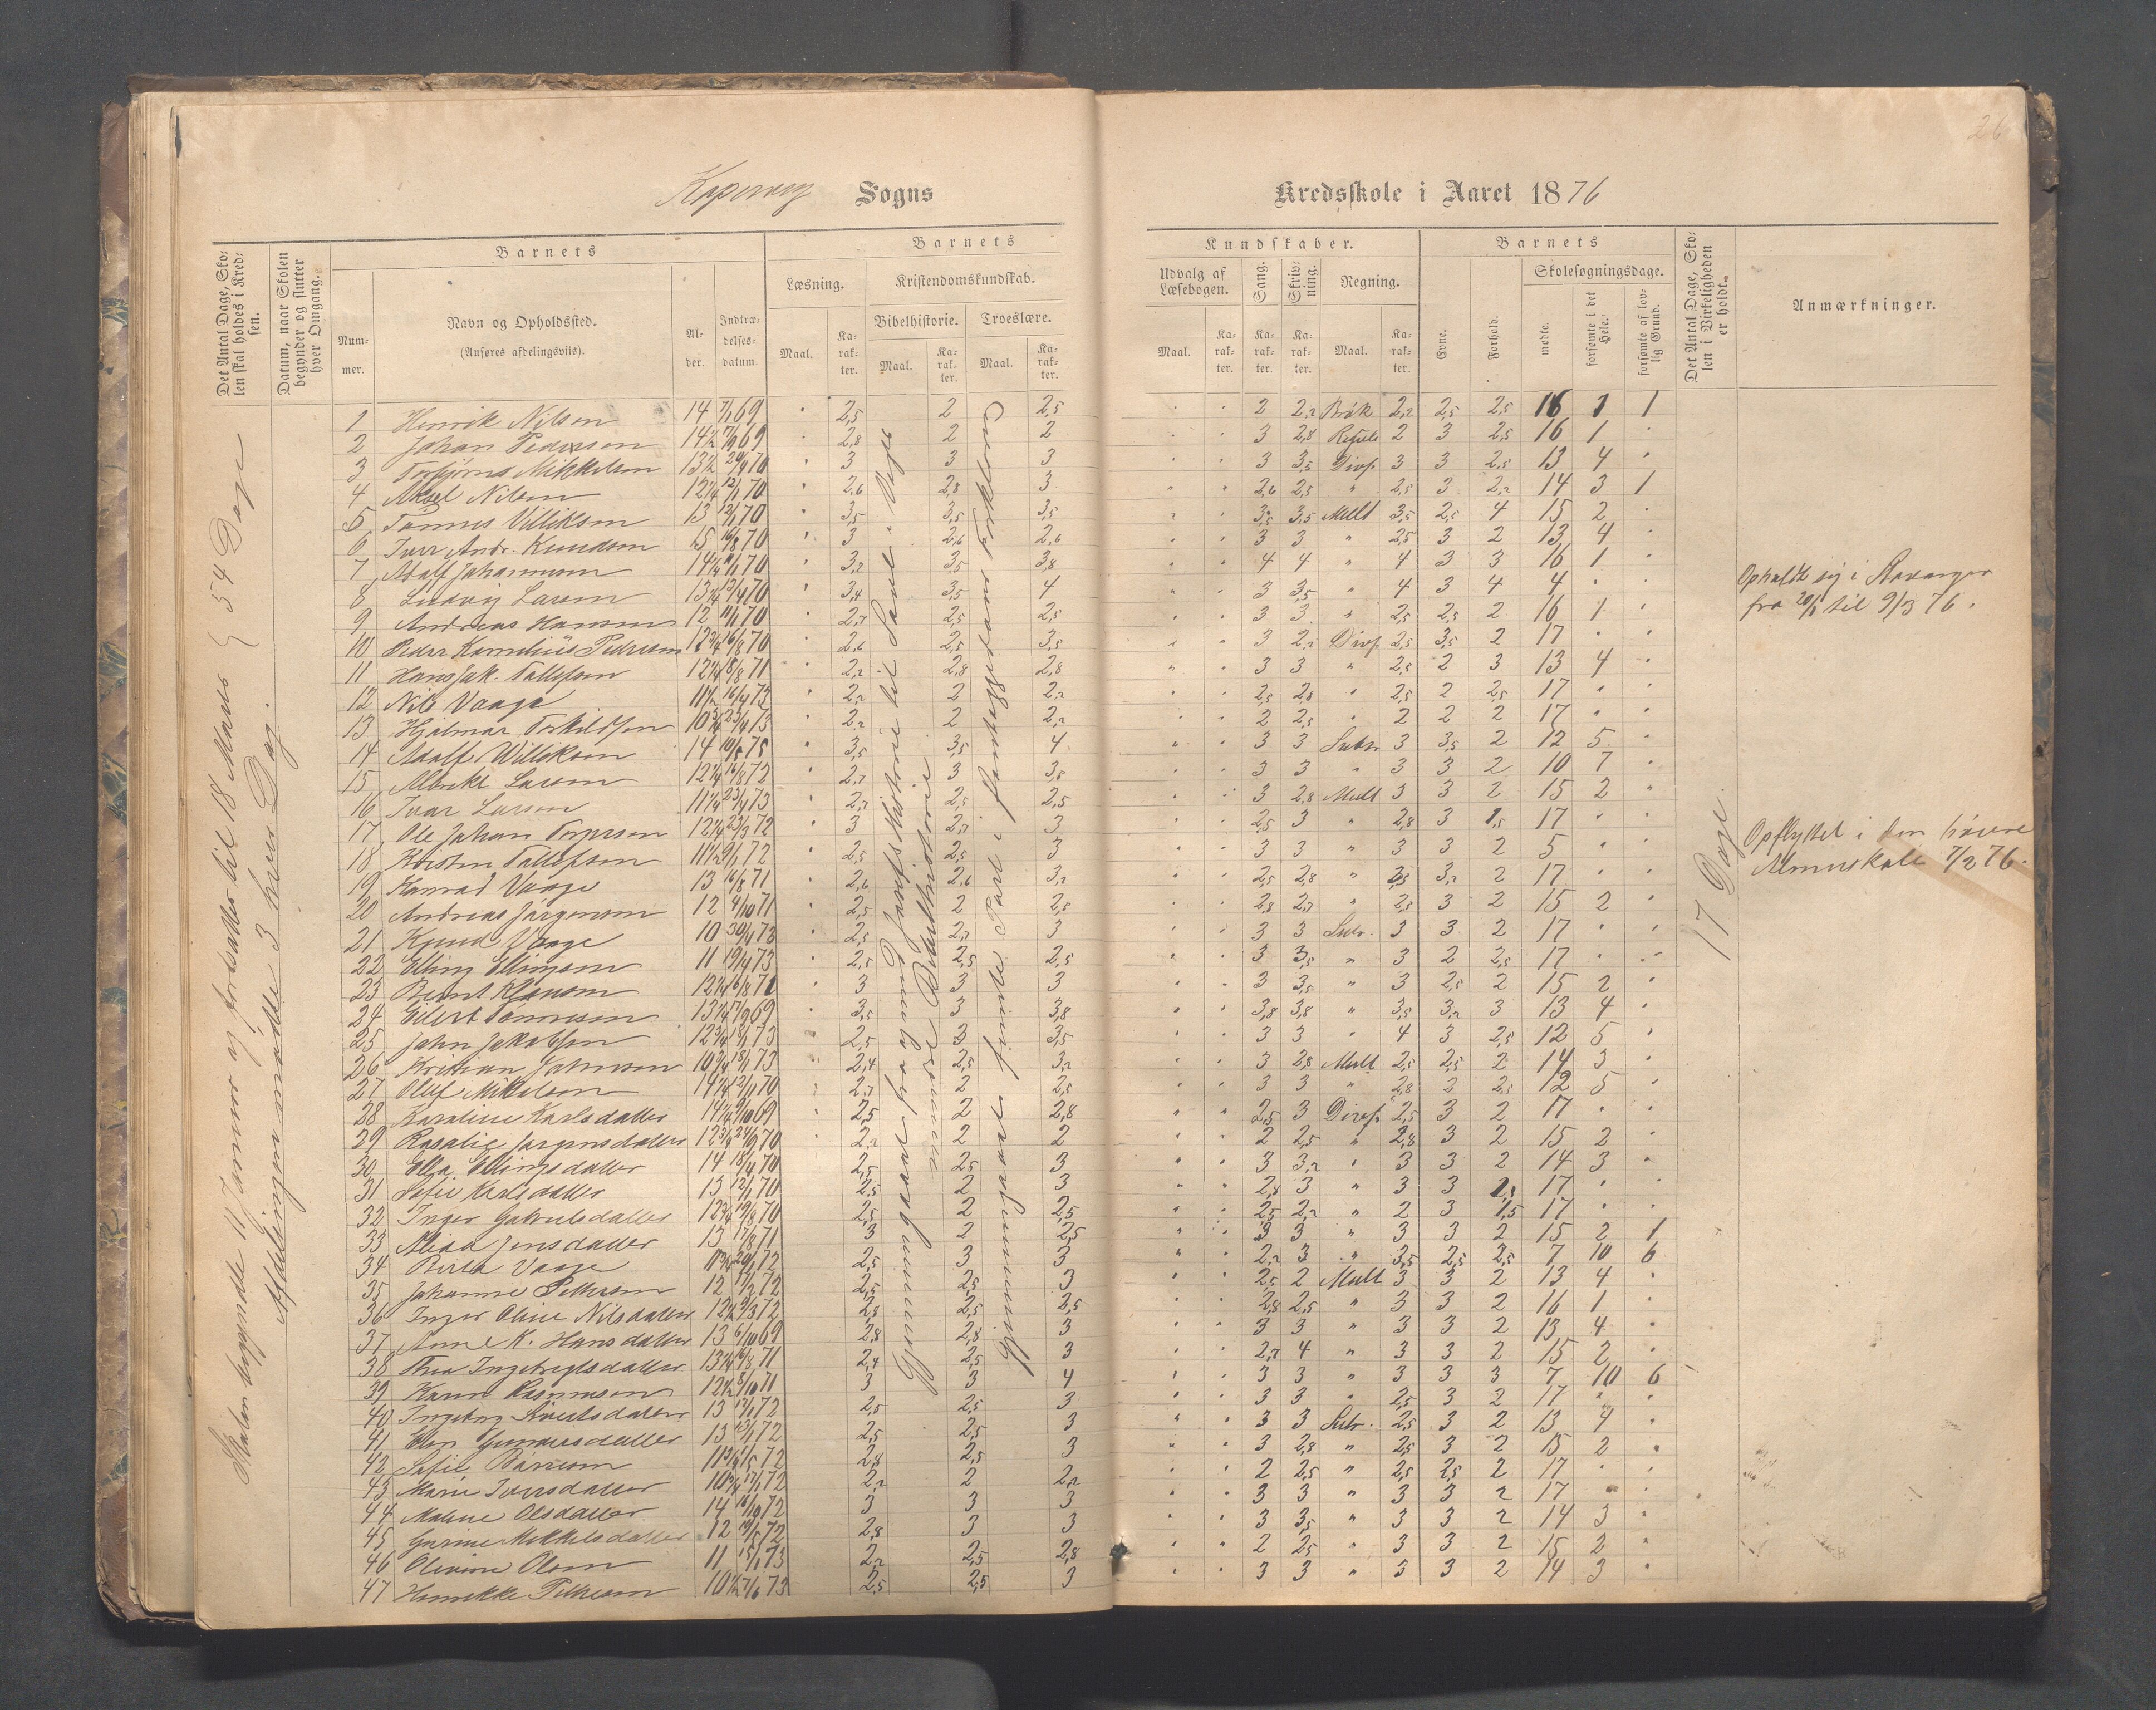 26
Kopervig Sogns Kredsskole i Aaret 1876
Det Antal Dage, Skolen skal holdes i Kredsen.
Datum, naar Skolen begynder og slutter hver Omgang.
Barnets
Nummer.
Navn og Opholdssted.
(Anføres afdelingsviis).
Alder.
Indtrædelsesdatum.
Barnets
Læsning.
Kristendomskundskab.
Bibelhistorie.
Troeslære.
Maal.
Karakter.
Maal.
Karakter.
Maal.
Karakter.
Kundskaber.
Udvalg af Læsebogen.
Sang.
Skrivning.
Regning.
Maal.
Karakter.
Karakter.
Karakter.
Maal.
Karakter.
Barnets
Evne.
Forhold.
Skolesøgningsdage.
mødte.
forsømte i det Hele.
forsømte af lovlig Grund.
Det Antal Dage, Skolen i Virkeligheden er holdt.
Anmærkninger.
Skolen begyndte 11 Januar og fortsattes til 18 Marts 54 Dage
Afdelingen mødte 3 hver Dag.
Gjennemgaaet fra og med Josefs Historie til Saul
Gjennemgaaet første Part i Forklaring
17 Dage.
1 Henrik Nilsen 14 7/1 69 2,5 2 2,5 2 2,2 Brøk 2,2 2,5 2,5 16 1 1
2 Johan Pedersen 14½ 7/9 69 2,8 2 2 3 2,8 2 3 2,5 16 1
3 Torbjørn Mikkelsen 13½ 3 3 3 3 3,5 Divs. 3 3 2,5 13 4
4 Aksel Nilsen 12¼ 12/1 70 2,6 2,8 3 2,6 2,5 " 2,5 3 2,2 14 3 1
5 Tønnes Villiksen 13 12/1 70 3,5 3,5 3,5 3,5 3,5 Mult 3,5 2,5 4 15 2
6 Iver Andr. Knudsen 15 16/8 70 3 2,6 2,6 3 3 " 2,5 3 2 13 4
7 Adolf Johannesen 14¼ 11/1 70 3,2 3,5 3,8 4 4 " 4 3 3 16 1
8 Ludvig Larsen 13¼ 3,4 3,5 4 3 3,5 " 4 3 4 4
Opholdt sig i Stavanger
fra 20/1 til 9/3 76.
9 Andreas Hansen 12 11/1 70 2,7 2,5 2,5 3 3 " 2,5 2,5 2 16 1
10 Peder Kornelius Pedersen 12¾ 16/8 70 2,6 2,5 3,5 3 2,2 Divs. 2,5 3,5 2 17
11 Hans Jak. Tollefsen 12¼ 18/8 71 2,2 2,8 2,8 3 3 " 2,5 2 3 13 4
12 Nils Vaage 11½ 16/4 73 2,2 2 2,2 2,5 2,8 " 2,5 2 2,5 17
13 Hjalmar Torkildsen 10¾ 23/4 73 2,2 2 2,2 2 2,5 " 2 2 2 17
14 Adolf Williksen 14 10/8 75 3,5 3,5 4 3 3 Subtr 3 3,5 2 12 5
15 Albrikt Larsen 12¼ 16/8 72 2,7 3 3,8 3 3 " 3 3 2 10 7
16 Ivar Larsen 11¼ 23/4 73 2,7 2,5 2,5 3 2,8 Mult 3 3 2 15 2
17 Ole Johan Torgersen 12¼ 23/3 72 3 2,7 3 2,5 3 " 2,8 3 1,5 17
18 Kristen Tollefsen 11½ 9/1 72 2,5 2,5 3 3 3 " 3 3 2 5
Opflyttet i den høiere
Almueskole 7/2 76.
19 Konrad Vaage 13 16/8 71 2,6 2,6 3,2 2,5 2,8 " 3,5 3,2 2 17
20 Andreas Jørgensen 12 4/10 71 2,5 2 2,5 2,8 2,7 " 2,5 3 2 15 2
21 Knud Vaage 10 30/4 73 2,5 2,7 3 3 3 Subr. 3 3 2 17
22 Elling Ellingsen 11 19/4 73 2,5 2,5 2,5 3 3,5 " 3 2 2,5 17
23 Bernt Klausen 12¼ 16/8 72 3 3 3 3 3,5 " 3 2,5 2 15 2
24 Eilert Tønnesen 13¼ 17/9 69 3,5 3 3,8 3,8 3,8 " 3,5 3,2 3 13 4
25 John Jakobsen 12¾ 18/1 73 2,5 3 3,5 3 3 " 4 3 2,5 12 5
26 Kristian Johnsen 10¾ 18/1 73 2,4 2,5 3,2 3 2,8 Mult 2,5 2,5 2 14 3
27 Oluf Mikkelsen 14¼ 12/1 70 2,7 2 2,5 3 3 " 2,8 2 2,5 12 5
28 Karoline Karlsdatter 14½ 9/10 69 2,5 2 2,8 2,5 3 Divs. 2,5 3 2 17
29 Rosalie Jørgensdatter 12¾ 24/9 70 2,2 2 2 2 2,5 " 2,8 3 2 15 2
30 Ella Ellingsdatter 14 18/4 70 2,5 2,5 3 3 3,2 " 3 3 2 14 3
31 Sofie Karlsdatter 13 12/1 70 2,5 2 3 2,8 3 " 3 3 2,5 17
32 Inger Gabrielsdatter 12¾ 19/8 70 2,5 2 2,5 2,5 2,2 " 2 3 1,5 17
33 Jensdatter 13 17/8 71 3 2 2,5 3 3 " 3 3 2 15 2 1
34 Berta Vaage 2,5 3 3 2,2 3 " 3,5 2,5 2,5 7 10 6
35 Johanne Pettersen 12 11/2 72 2,5 2,5 3 2,5 2 Mult 3 3 2 13 4
36 Inger Oline Nilsdatter 12½ 9/3 72 2,8 2,5 2,5 2,8 2,5 " 3 3 2 16 1
37 Anne K. Hansdatter 13 6/10 69 2,8 2,8 3 3 3 " 3 3 2 13 4
38 Thea Ingebregtsdatter 13¼ 16/8 71 2,4 2,5 3 2,7 4 " 3 3 2 15 2
39 Karen Rasmussen 12½ 8/10 71 3 3 4 3 3 " 3 3 3 7 10 6
40 Ingeborg Sivertsdatter 13 12/1 72 2,5 2,5 3 3 3 " 2,5 3 2 17
41 Elen Gundersdatter 13 23/1 72 2,5 2,5 3 3 3 Subr. 2,5 3 2 13 4
42 Sofie 2,8 2,5 3 3 2,8 " 2,5 3 2 15 2
43 Marie Iversdatter 10¾ 17/1 72 2,2 2 2,2 2 2,5 " 2,5 2,5 2 17
44 Malene Olsdatter 14 16/10 72 3 3 3 3 3 " 3 3 2 17
45 Gurine Mikkelsdatter 12 2,8 3 3 3 3,5 " 3 3 2 14 3
46 Olivine Olsen 11 15/1 73 2,2 2,5 2,8 2 2,5 " 3 3 2 15 2
47 Henrikke Pettersen 10½ 7/6 73 2,5 2,5 3 3 3 " 3 3 2 14 3